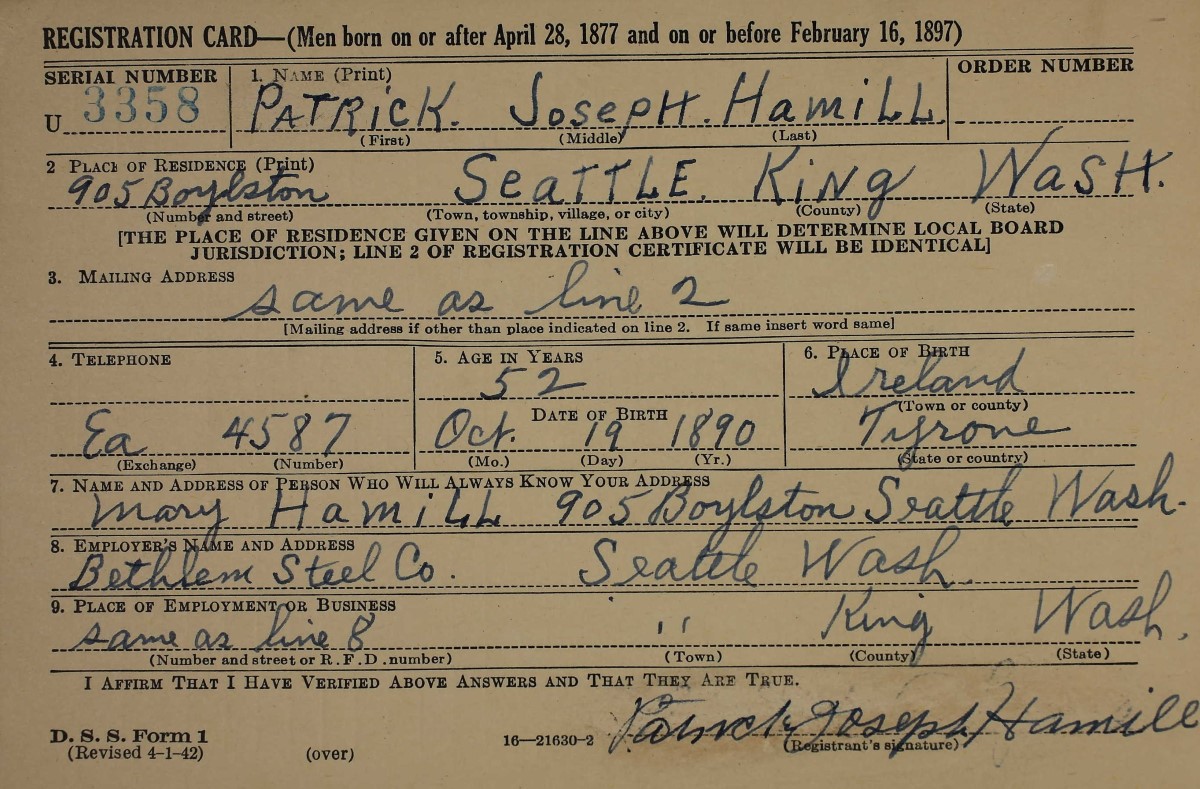 REGISTRATION CARD—(Men born on or after April 28, 1877 and on or before February 16, 1897)
SERIAL NUMBER
1. NAME (Print)
ORDER NUMBER
U 3358
PATRICK. JOSEPH. HAMILL
(First) (Middle) (Last)
2 PLACE OF RESIDENCE (Print)
905 Boylston SEATTLE. KiNg WASH.
(Number and street) (Town, township, village, or city) (County) (State)
[THE PLACE OF RESIDENCE GIVEN ON THE LINE ABOVE WILL DETERMINE LOCAL BOARD
JURISDICTION; LINE 2 OF REGISTRATION CERTIFICATE WILL BE IDENTICAL]
3. MAILING ADDRESS
same as line 2
[Mailing address if other than place indicated on line 2. If same insert word same]
4. TELEPHONE
5. AGE IN YEARS
6. PLACE OF BIRTH
52
Ireland
DATE OF BIRTH
(Town or county)
Ea 4587
Oct. 19 1890
Tyrone
(Exchange) (Number)
(Mo.) (Day) (Yr.)
(State or country)
7. NAME AND ADDRESS OF PERSON WHO WILL ALWAYS KNOW YOUR ADDRESS
Mary Hamill 905 Boylston Seattle Wash.
8. EMPLOYER'S NAME AND ADDRESS
Bethlem Steel Co. Seattle Wash.
9. PLACE OF EMPLOYMENT OR BUSINESS
same as line 8 " King Wash.
(Number and street or R. F. D. number) (Town) (County) (State)
I AFFIRM THAT I HAVE VERIFIED ABOVE ANSWERS AND THAT THEY ARE TRUE.
Patrick Joseph Hamill
D. S. S. Form 1
(Revised 4-1-42) (over) 16—21630-2 (Registrant's signature)